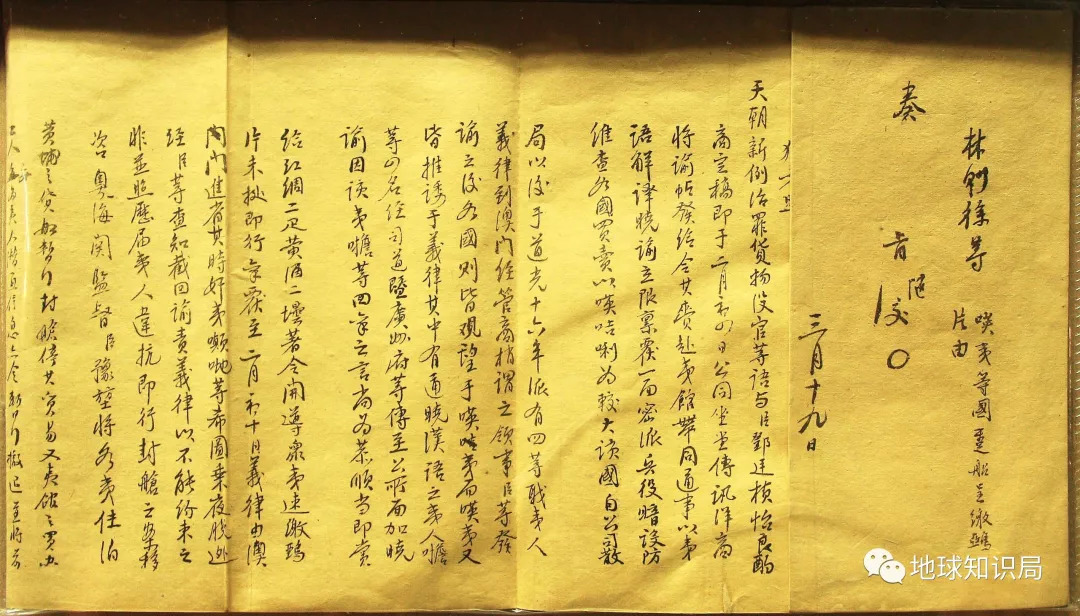 奏
林則徐等
唊夷等國躉船呈繳鴉
片由
旨
隨
三月十九日
天朝新例治罪貨物没官等語与臣鄧廷楨怡良酌
商定稿即于二月初四日公同坐堂傳訊洋商
将諭帖發给令其賫赴夷館帶同通事以夷
語解譯曉諭立限禀覆一面密派兵役暗設防
維查各國買賣以唊咭唎为較大該國自公司散
局以後于道光十六年派有四等職夷人
義律到澳門经管商梢謂之領事臣等發
諭之後各國則皆观望于唊咭夷而唊夷又
皆推諉于義律其中有通曉漢語之夷人噡
等四名经司道暨廣州府等傳至公所面加曉
諭因該夷噡等回禀之言尚为恭順当即賞
给红綢二疋黄酒二壜著令開導衆夷速繳鴉
片未抄即行禀覆至二月初十日義律由澳
門门進省其时奸夷顛哋等希圖乗夜脱逃
经臣等查知截回諭責義律以不能约束之
非並照歷届夷人違抗即行封艙之案移
咨奥海関監督臣豫堃将各夷住泊
黄埔之貨船暂行封艙停其貿易又夷館之買办
工人
地球知识局